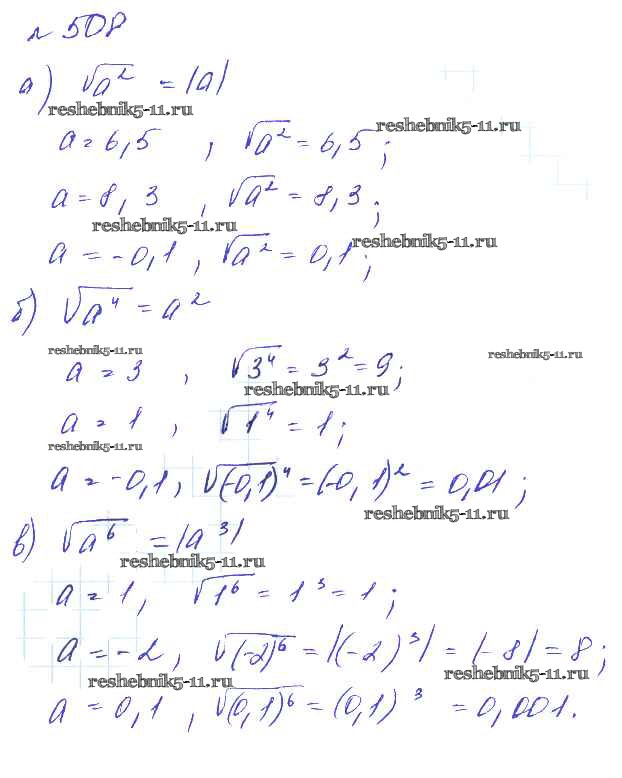 № 508
а) √a² = |a|
reshebnik5-11.ru
a = 6,5 , √a² = 6,5 ;
reshebnik5-11.ru
a = 8,3 , √a² = 8,3 ;
reshebnik5-11.ru
a = -0,1 , √a² = 0,1 ;
reshebnik5-11.ru
б) √a⁴ = a²
reshebnik5-11.ru reshebnik5-11.ru
a = 3 , √3⁴ = 3² = 9 ;
reshebnik5-11.ru
a = 1 , √1⁴ = 1 ;
reshebnik5-11.ru
a = -0,1 , √(-0,1)⁴ = (-0,1)² = 0,01 ;
reshebnik5-11.ru
в) √a⁶ = |a³|
reshebnik5-11.ru
a = 1 , √1⁶ = 1³ = 1 ;
a = -2 , √(-2)⁶ = |(-2)³| = |-8| = 8 ;
reshebnik5-11.ru reshebnik5-11.ru
a = 0,1 , √(0,1)⁶ = (0,1)³ = 0,001.